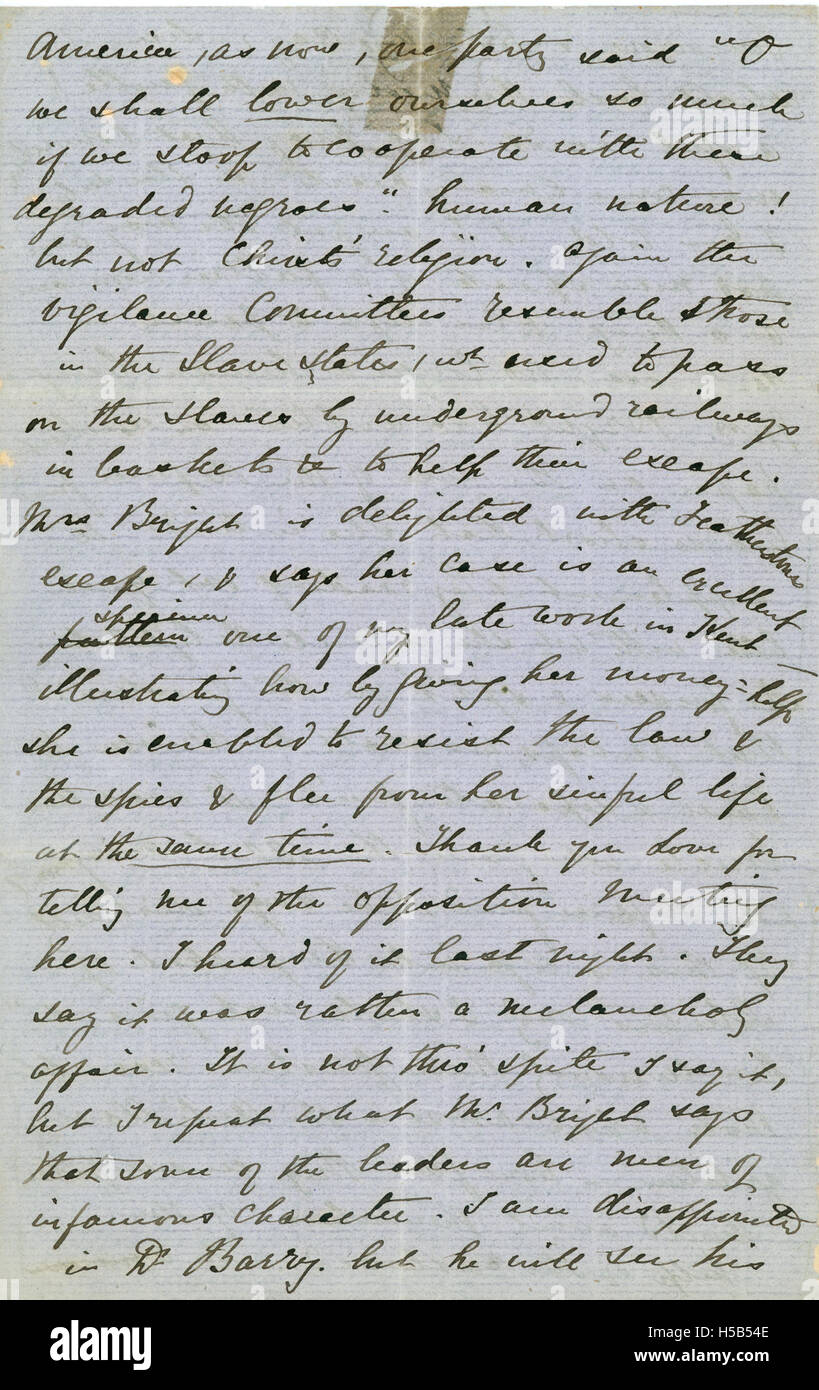 America, as now, one party said "O
we shall lower ourselves so much
if we stoop to cooperate with these
degraded negroes". human nature!
but not Christ's religion. Again the
Vigilance Committees resemble those
in the Slave States, wh used to pass
on the slaves by underground railways
in baskets & to help their escape.
Mrs Bright is delighted with Featherstone
escape, & says her case is an excellent
specimen
pattern one of my late work in Kent –
illustrating how by giving her money=help
she is enabled to resist the law &
the spies & flee from her sinful life
at the same time. Thank you Love for
tell'g me of the opposition Meeting
here. I heard of it last night. They
say it was rather a melancholy
affair. It is not thro' spite I say it,
but I repeat what Mr. Bright says
that some of the leaders are men of
infamous character. I am disappointed
in Dr Barry. but he will see his
alamy
alamy stock photo
H5B54E
www.alamy.com